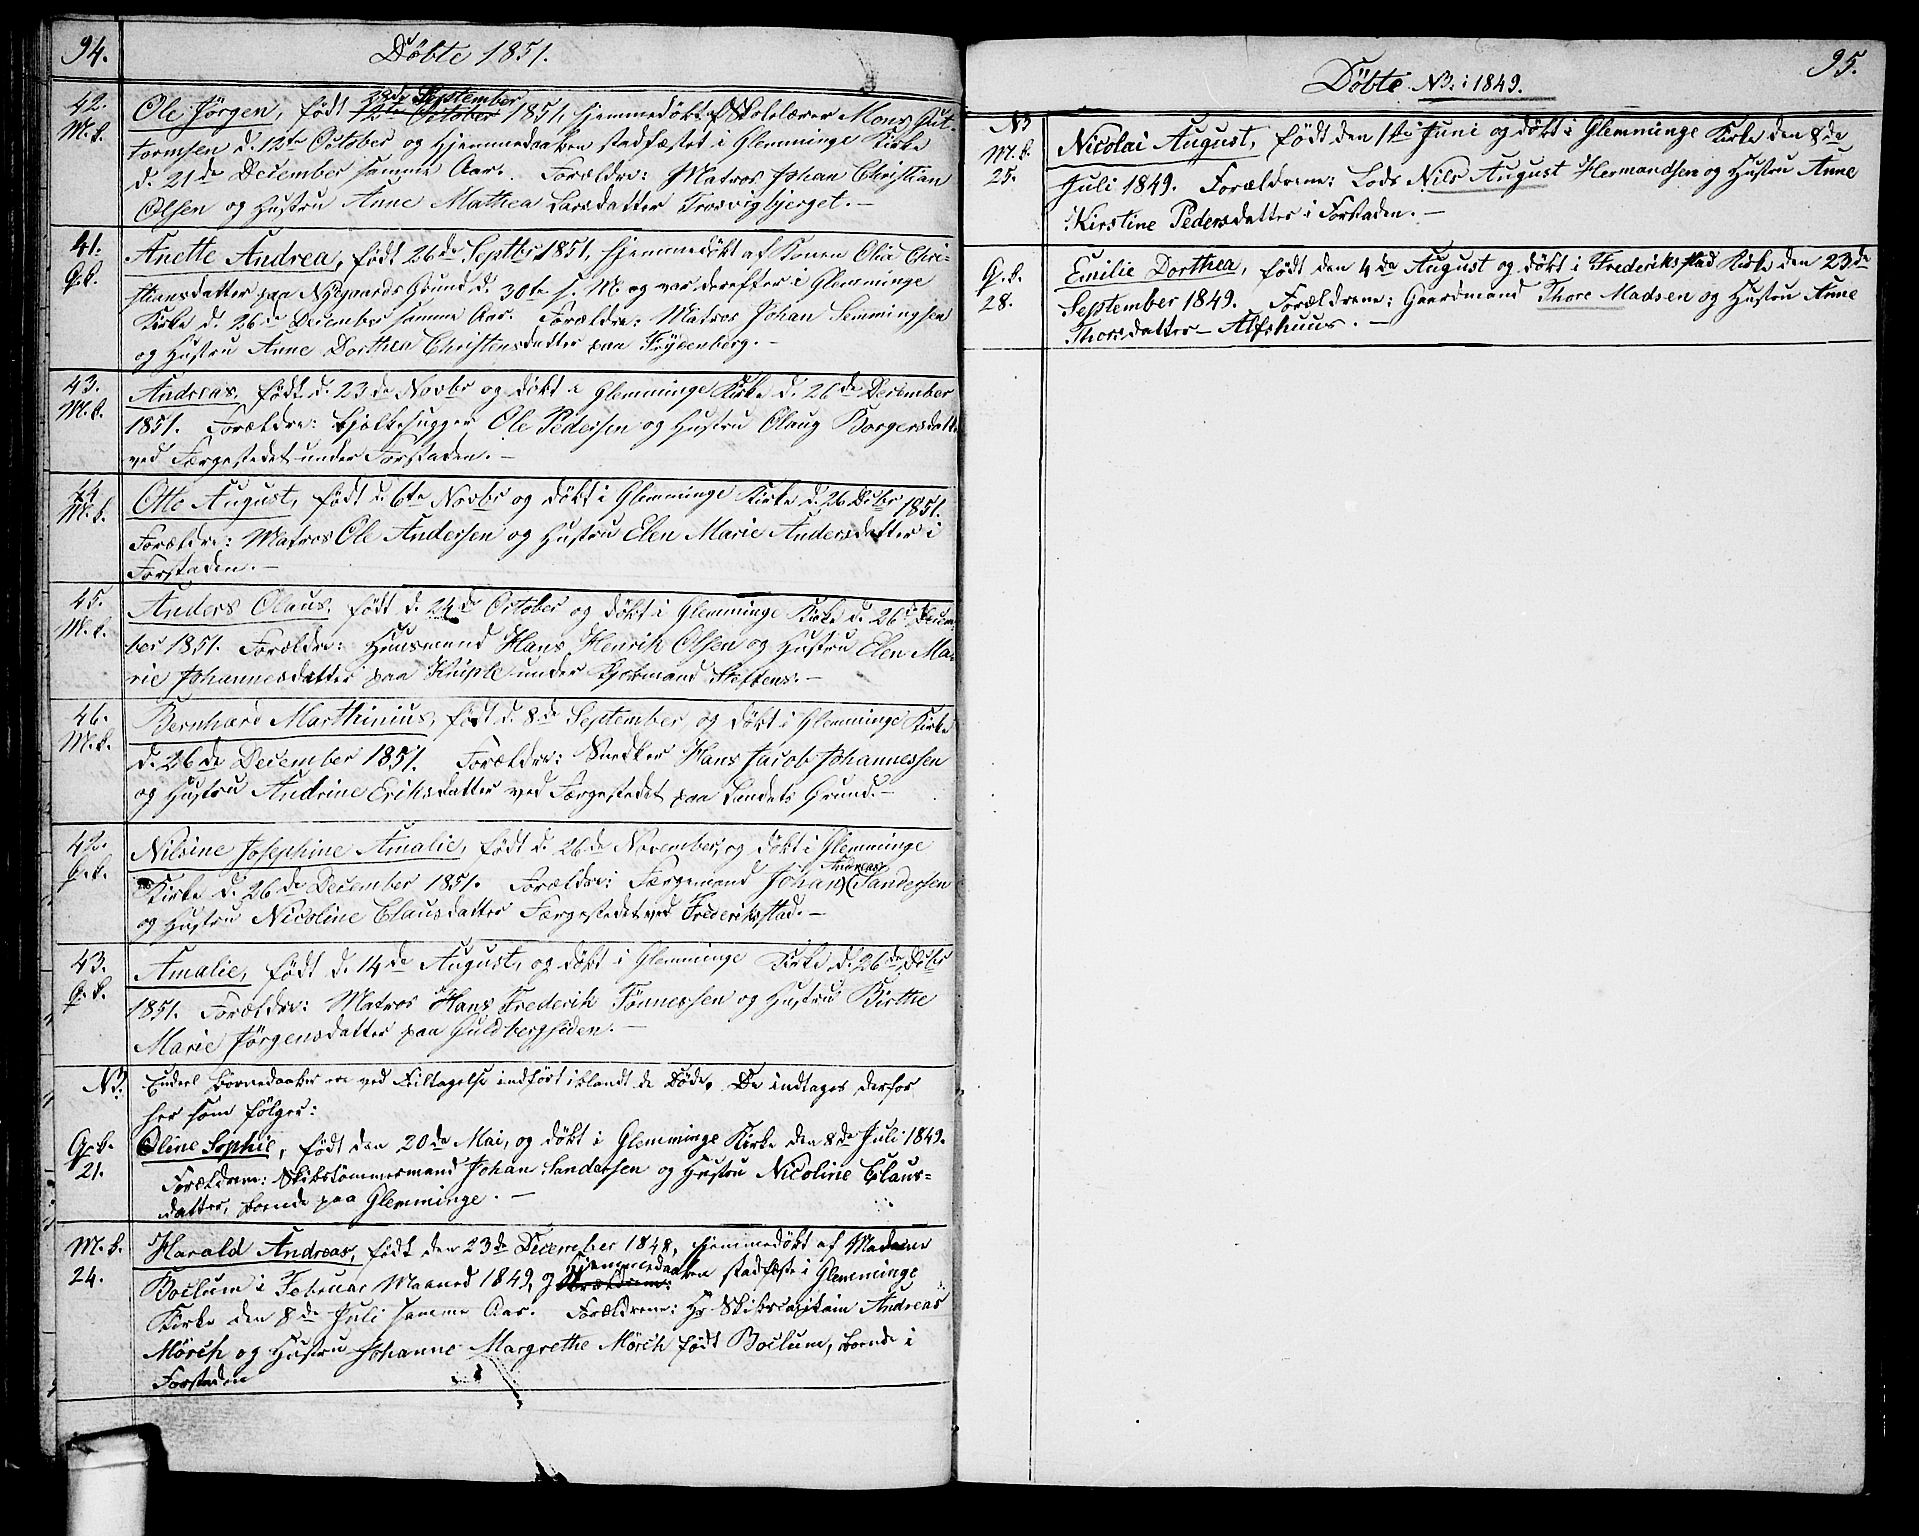 94.
Döbte 1851.
42.
M. b.
Ole Jörgen, född 12te October 23de September 1851, hjemmedöbt af Skolelærer Mons Gut-
tormsen d. 12te October og Hjemmedaaben stadfæstet i Glemminge Kirke
d. 21de December samme Aar. Forældre: Matros Johan Christian
Olsen og Hustru Anne Mathea Larsdatter Trosvigbjerget. —
41.
G. b.
Anette Andrea, født 26de Septbr 1851, hjemmedöbt af Konen Olia Chri-
stiansdatter paa Nygaards Grund d. 30te s. M. og var derefter i Glemminge
Kirke d. 26de December samme Aar. Forældre: Matros Johan Semmingsen
og Hustru Anne Dorthea Christensdatter paa Frydenberg. —
43.
M. b.
Andreas, født d. 23de Novbr og döbt i Glemminge Kirke d. 26de December
1851. Forældre: Bjelkehugger Ole Pedersen og Hustru Olaug Borgersdatt.
ved Færgestedet under Forstaden. —
44.
M. b.
Otto August, født d. 6te Novbr og döbt i Glemminge Kirke d. 26 Dcbr 1851.
Forældre: Matros Ole Andersen og Hustru Elen Marie Andersdatter i
Forstaden. —
45.
M. b.
Anders Olaus, født d. 24de October og döbt i Glemminge Kirke d. 26de Decem-
ber 1851. Forældre: Huusmand Hans Henrik Olsen og Hustru Elen Ma-
rie Johannesdatter paa Kniple under Steffens. —
46.
M. b.
Bernhard Marthinius, født d. 8de September, og döbt i Glemminge Kirke
d. 26de December 1851. Forældre: Snedker Hans Jacob Johannessen
og Hustru Andrine Eriksdatter ved Færgestedet paa Landets Grund. —
42.
G. b.
Nilsine Josephine Amalie, født d. 26de November, og döbt i Glemminge
Kirke d. 26de December 1851. Forældre: Færgemand Johan Andreas Sandersen
og Hustru Nicoline Clausdatter Færgestedet ved Frederikstad. —
43.
G. b.
Amalie, født d. 14de August, og döbt i Glemminge Kirke d. 26de Dcbr
1851. Forældre: Matros Hans Frederik Tönnessen og Hustru Birthe
Marie Jörgensdatter paa Guldbergsiden. —
NB.
Endeel Barnedaaber ere ved Feiltagelse indført iblandt de Døde. De indtages derfor
her som følger:
G. b.
21.
Oline Sophie, født den 20de Mai, og döbt i Glemminge Kirke den 8de Juli 1849.
Forældrene: Skibstömmermand Johan Sandersen og Hustru Nicoline Claus-
datter, boende paa Glemminge. —
M. b.
24.
Harald Andreas, født den 23de December 1848, hjemmedöbt af Madame
Boclum i Februar Maaned 1849, og Forældrene: Hjemmedaaben stadfæstet i Glemminge
Kirke den 8de Juli samme Aar. Forældrene: Hr Skibscapitain Andreas
Mörch og Hustru Johanne Margrethe Mörch født Boclum, boende i
Forstaden
95.
Döbte NB: 1849.
NB
M. b.
25.
Nicolai August, født den 1ste Juni og döbt i Glemminge Kirke den 8de
Juli 1849. Forældrene: Lods Nils August Hermandsen og Hustru Anne
Kirstine Pedersdatter i Forstaden. —
G. b.
28.
Emilie Dorthea, født den 4de August og döbt i Frederikstad Kirke den 23de
September 1849. Forældrene: Gaardmand Thore Madsen og Hustru Anne
Thorsdatter — Alfshuus. —